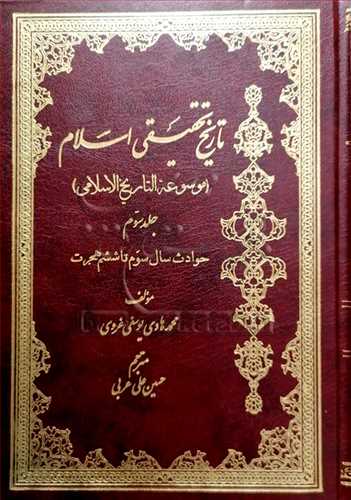 تاریخ تحقیقی اسلام
(موسوعة التاریخ الاسلامی)
جلد سوم
حوادث سال سوم تا ششم هجرت
مؤلف
محمد هادی یوسفی غروی
مترجم
حسین علی عربی